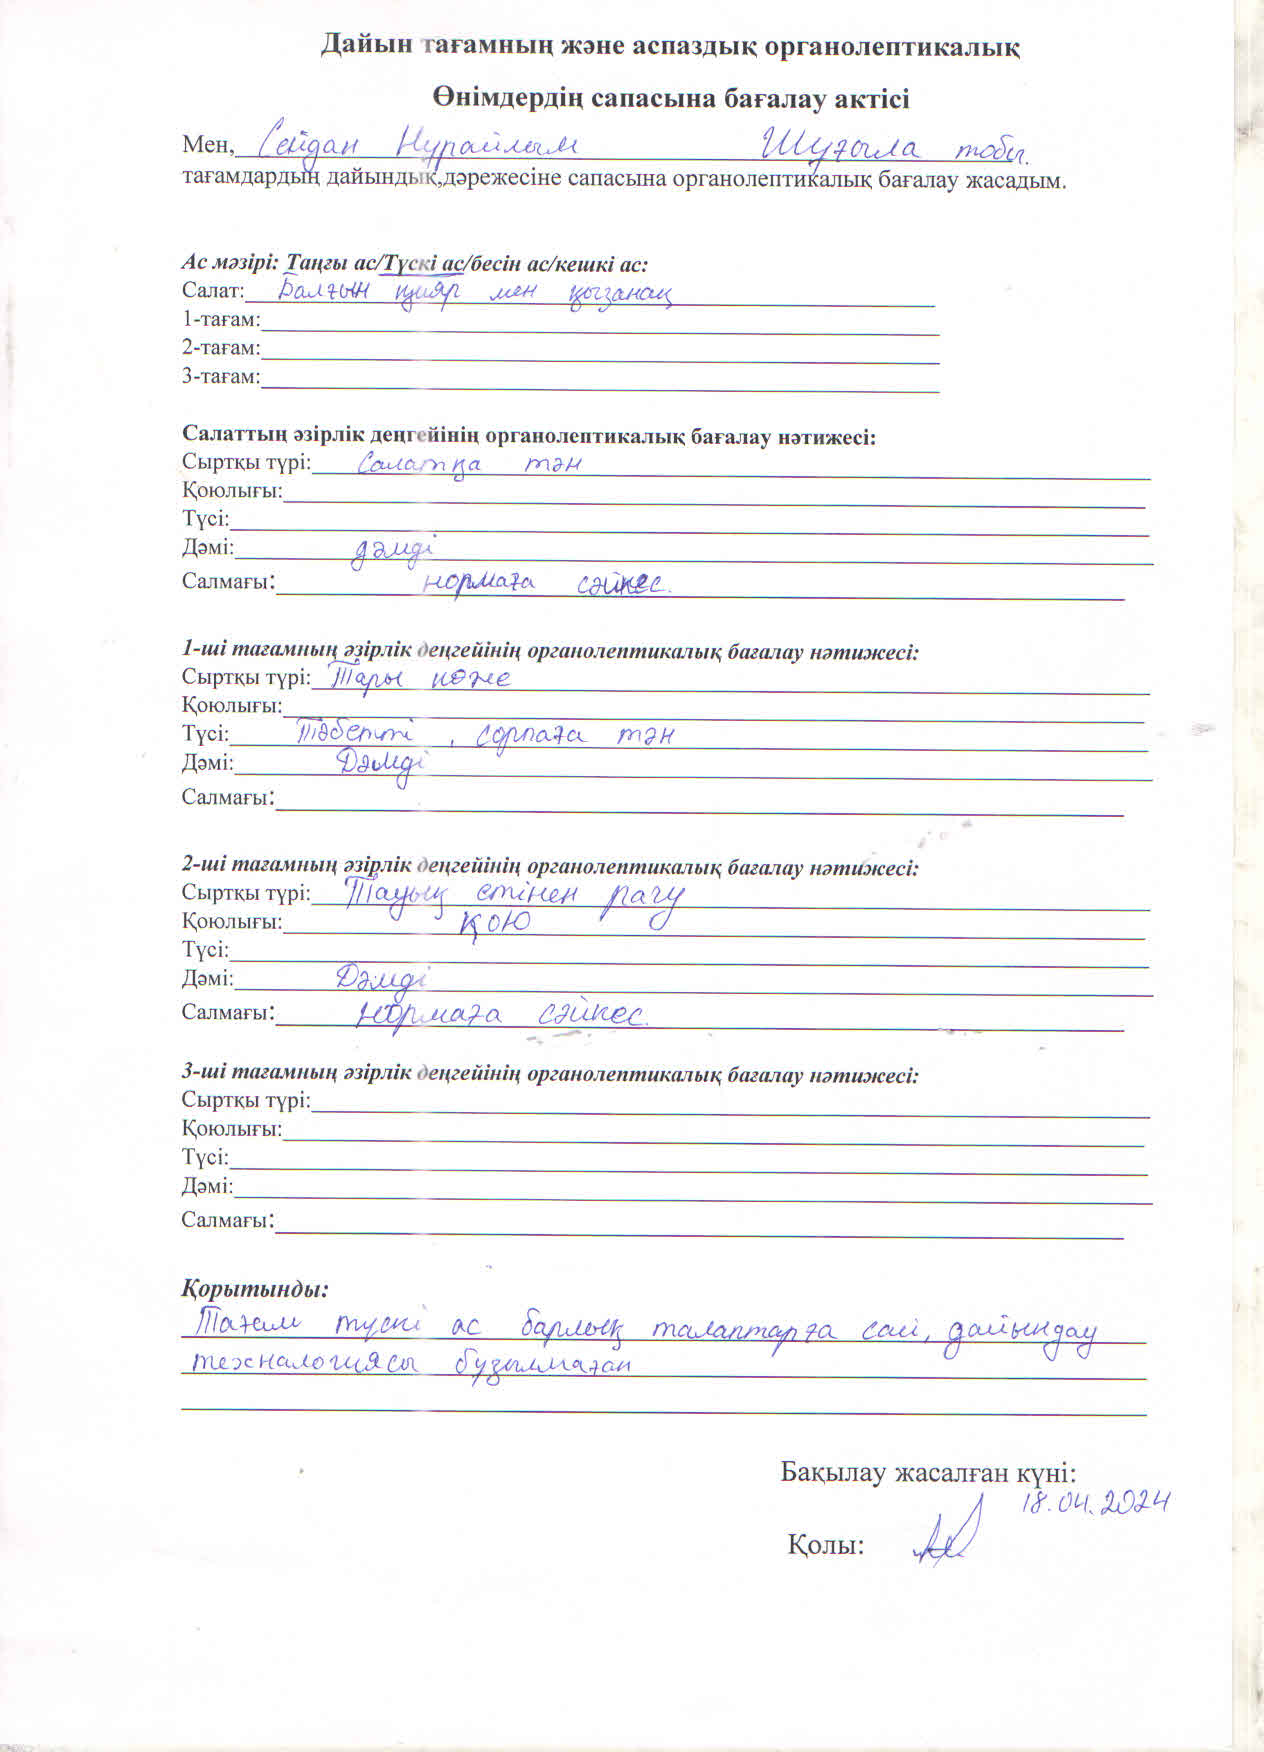 Дайын тағамның және аспаздық органолептикалық
Өнімдердің сапасына бағалау актісі
Мен, Сейдан Нурайлым Шуғыла тобы.
тағамдардың дайындық,дәрежесіне сапасына органолептикалық бағалау жасадым.
Ас мәзірі: Таңғы ас/Түскі ас/бесін ас/кешкі ас:
Салат: Балғын қияр мен қызанақ
1-тағам:
2-тағам:
3-тағам:
Салаттың әзірлік деңгейінің органолептикалық бағалау нәтижесі:
Сыртқы түрі: Салатқа тән
Қоюлығы:
Түсі:
Дәмі: дәмді
Салмағы: нормаға сәйкес.
1-ші тағамның әзірлік деңгейінің органолептикалық бағалау нәтижесі:
Сыртқы түрі: Тары көже
Қоюлығы:
Түсі: Тәбетті , сорпаға тән
Дәмі: Дәмді
Салмағы:
2-ші тағамның әзірлік деңгейінің органолептикалық бағалау нәтижесі:
Сыртқы түрі: Тауық етінен рагу
Қоюлығы: қою
Түсі:
Дәмі: Дәмді
Салмағы: Нормаға сәйкес.
3-ші тағамның әзірлік деңгейінің органолептикалық бағалау нәтижесі:
Сыртқы түрі:
Қоюлығы:
Түсі:
Дәмі:
Салмағы:
Қорытынды:
Тағам түскі ас барлық талаптарға сай, дайындау
технологиясы бұзылмаған
Бақылау жасалған күні:
18.04.2024
Қолы: